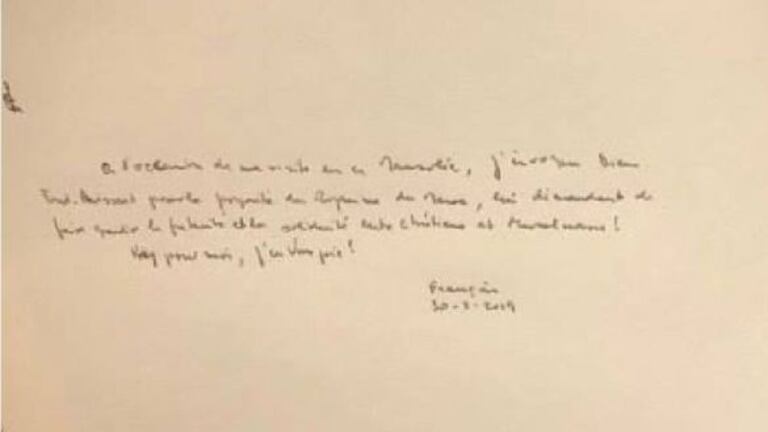 A l'occasion de ma visite en ce Mausolée, j'invoque Dieu
Tout-Puissant pour la prospérité du Royaume du Maroc, lui demandant de
faire grandir la fraternité et la solidarité entre Chrétiens et Musulmans !
Priez pour moi, j'en vous prie !
François
30-3-2019